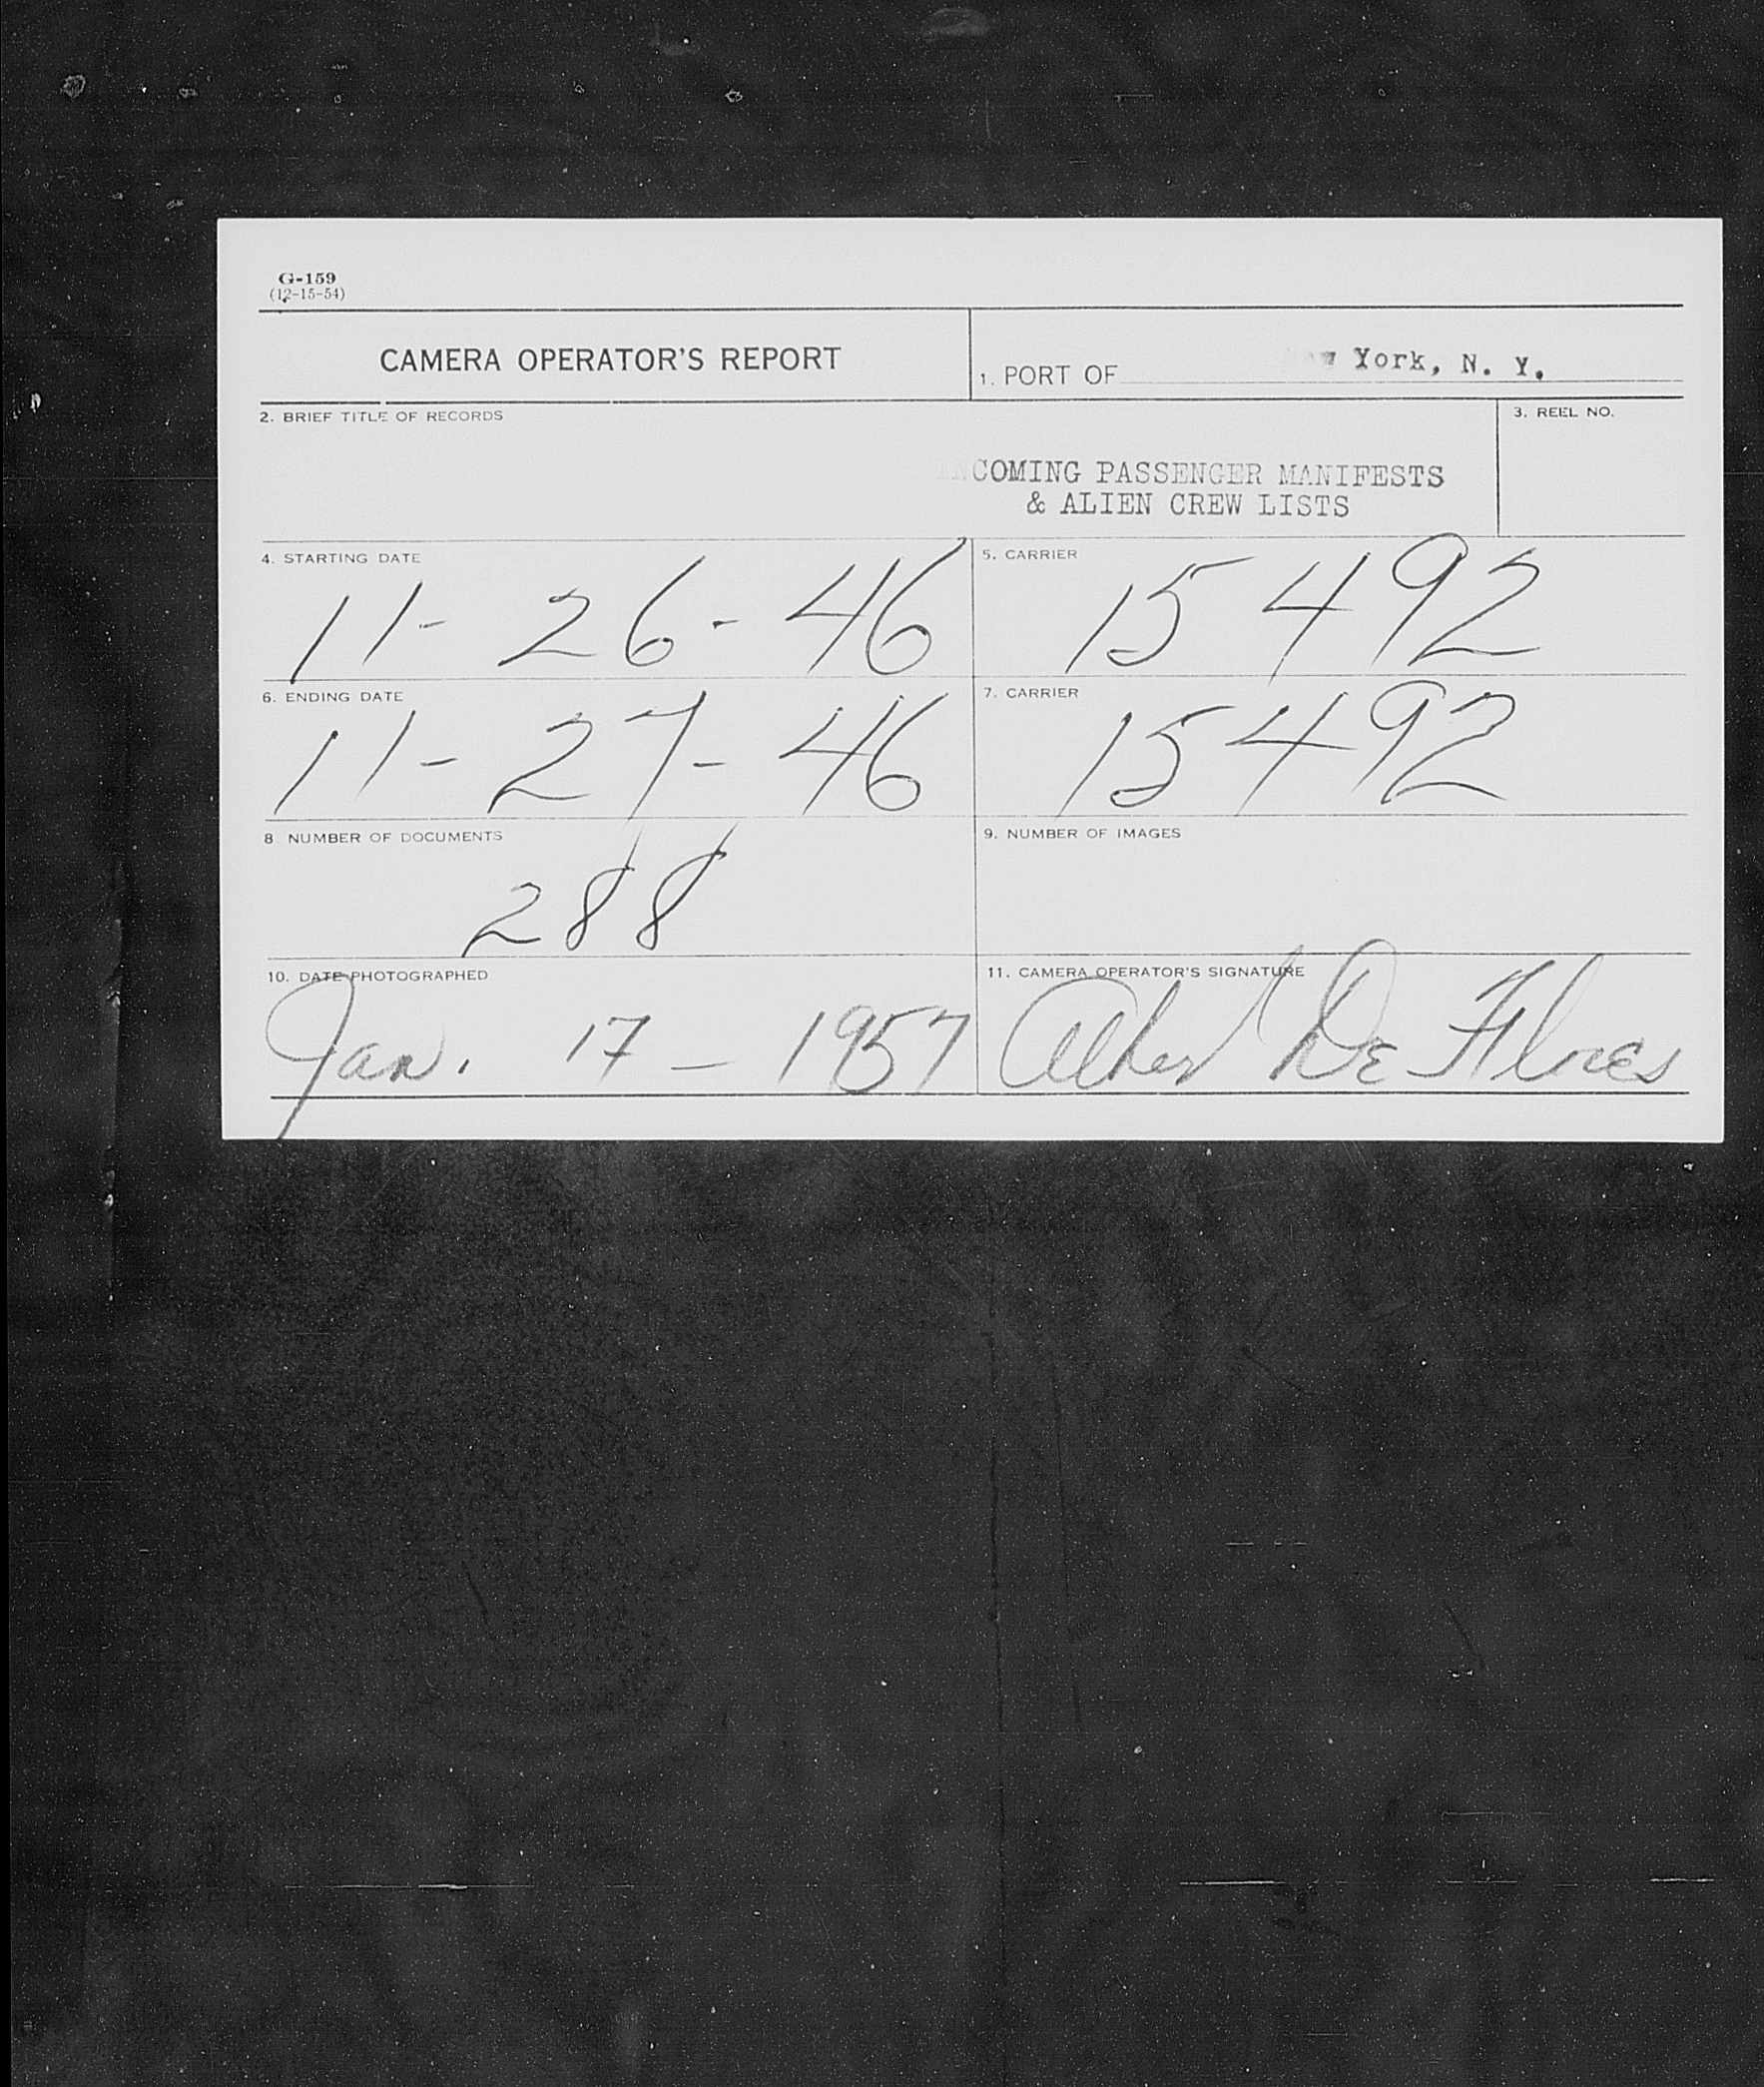 G-159
(12-15-54)
CAMERA OPERATOR'S REPORT
1. PORT OF New York, N. Y.
2. BRIEF TITLE OF RECORDS
3. REEL NO.
INCOMING PASSENGER MANIFESTS
& ALIEN CREW LISTS
4. STARTING DATE
11-26-46
5. CARRIER
15492
6. ENDING DATE
11-27-46
7. CARRIER
15492
8 NUMBER OF DOCUMENTS
288
9. NUMBER OF IMAGES
10. DATE PHOTOGRAPHED
Jan. 17 - 1957
11. CAMERA OPERATOR'S SIGNATURE
De